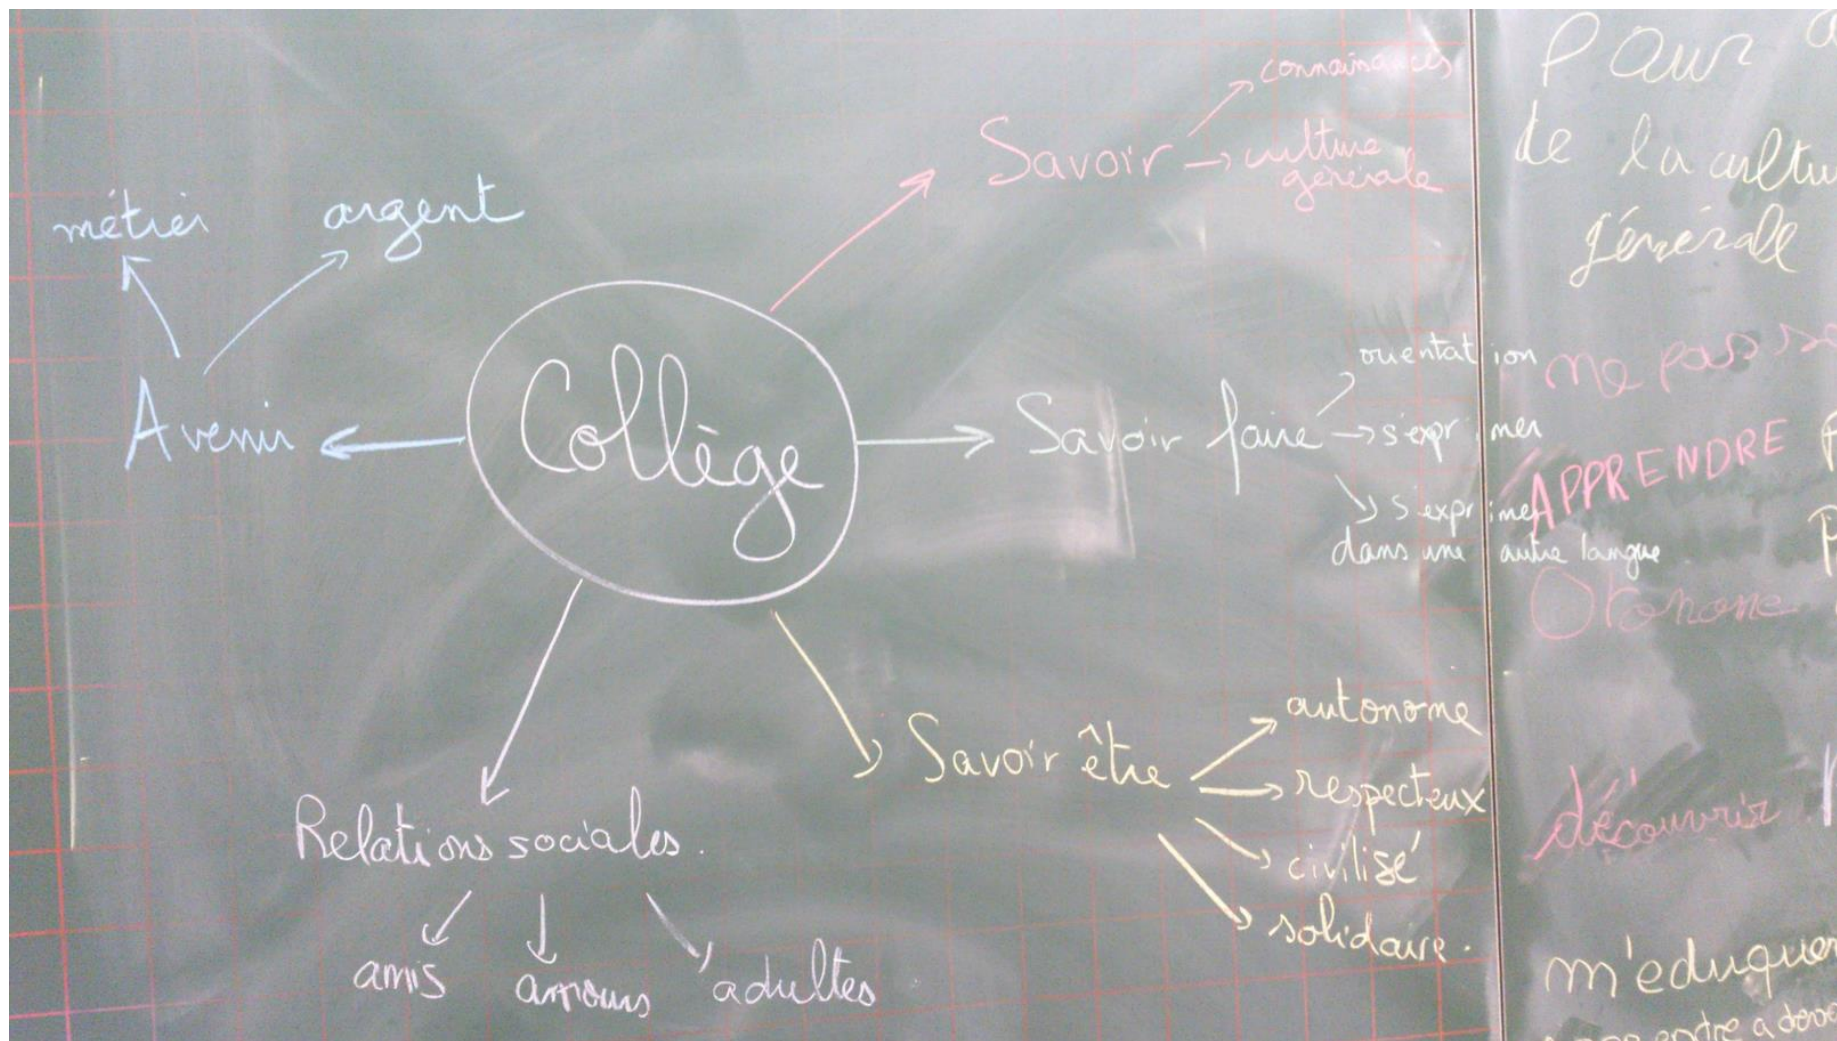 métier
argent
Avenir
Collège
Savoir
connaissances
culture
générale
Savoir faire
orientation
s'exprimer
s'exprimer
dans une autre langue
Savoir être
autonome
respecteux
civilisé
solidaire.
Relations sociales.
amis
amours
adultes
Pour
de la cultu
générale
me pas se
APPRENDRE
Otonome
découvrir
m'eduquer